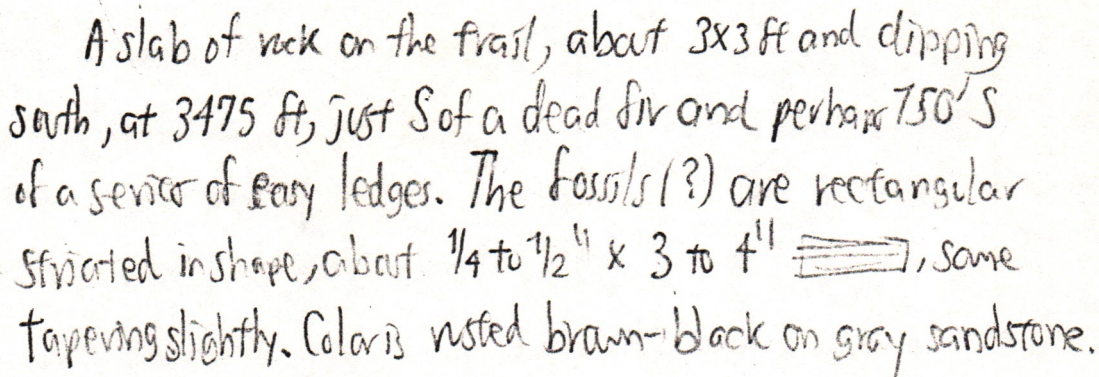 A slab of rock on the trail, about 3x3 ft and dipping
south, at 3475 ft, just S of a dead fir and perhaps 750' S
of a series of easy ledges. The fossils (?) are rectangular
striated in shape, about 1/4 to 1/2" x 3 to 4" , some
tapering slightly. Color is rusted brown-black on gray sandstone.